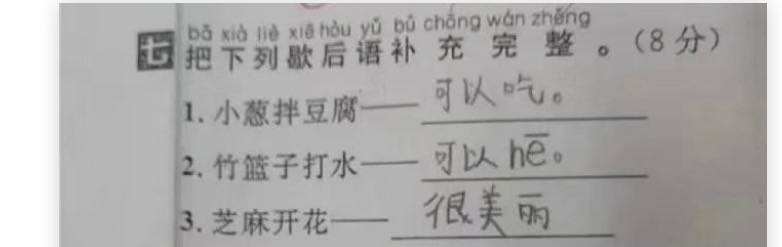 bǎ xià liè xiē hòu yǔ bǔ chōng wán zhěng
把下列歇后语补充完整。（8分）
1. 小葱拌豆腐——可以吃。
2. 竹篮子打水——可以hē。
3. 芝麻开花——很美丽